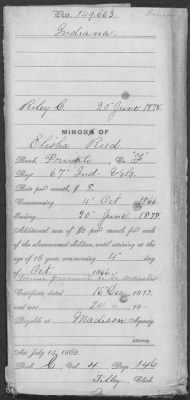 No. 149.663
Indiana
Riley C. 20 June 1878.
MINORS OF
Elisha Reed
Rank, Private Co. "F"
Reg. 67" Ind. Vols.
Rate per month, $ 8.
Commencing 4" Oct 1866.
Ending 20" June 1878.
Additional sum of $2 per month for each
of the abovenamed children, until arriving at the
age of 16 years, commencing 4" day
of Oct 1866.
Certificate dated 16 Dec. 1873.
and sent
Payable at Madison Agency.
Attorney.
Act July 14, 1862.
Book C Vol. 4 Page 146
Tilley Clerk.